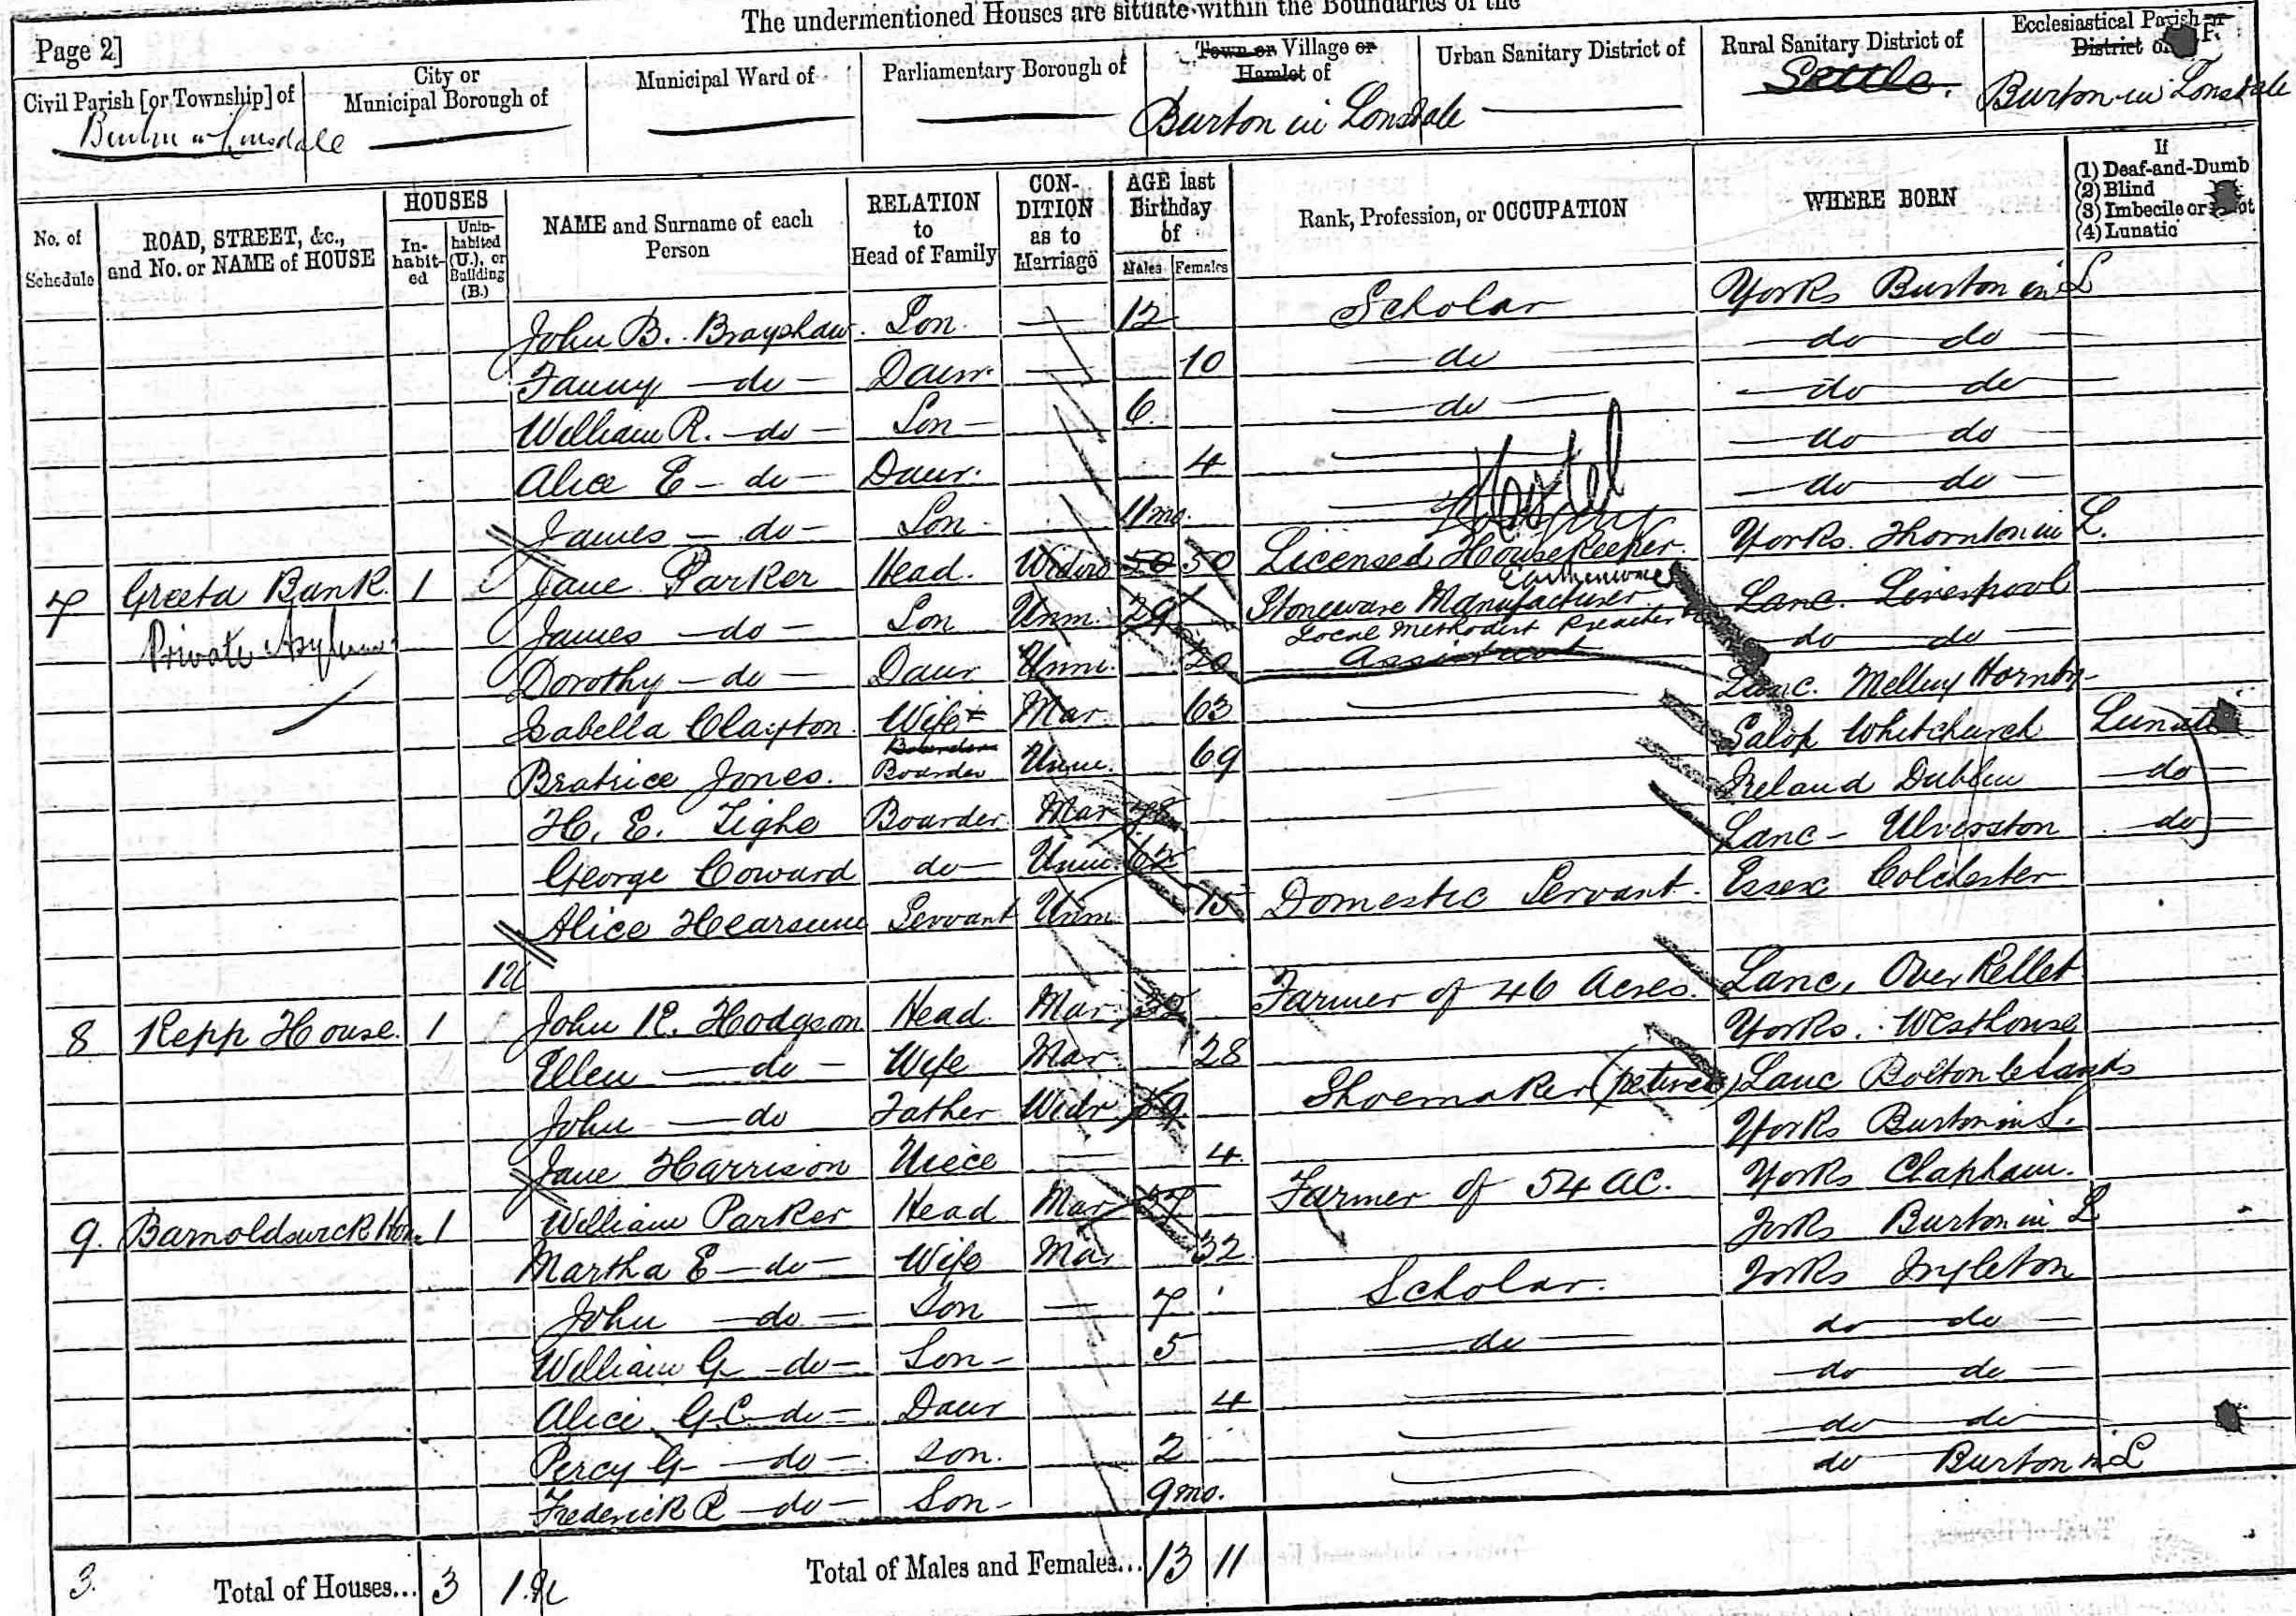 The undermentioned Houses are situate within the Boundaries of the
Page 2]
Civil Parish [or Township] of
City or Municipal Borough of
Municipal Ward of
Parliamentary Borough of
Town or Village or Hamlet of
Urban Sanitary District of
Rural Sanitary District of
Ecclesiastical Parish or District of
Burton in Lonsdale Burton in Lonsdale Settle. Burton in Lonsdale
No. of Schedule
ROAD, STREET, &c., and No. or NAME of HOUSE
HOUSES
Inhabited
Uninhabited (U.), or Building (B.)
NAME and Surname of each Person
RELATION to Head of Family
CONDITION as to Marriage
AGE last Birthday of
Males Females
Rank, Profession, or OCCUPATION
WHERE BORN
If
(1) Deaf-and-Dumb
(2) Blind
(3) Imbecile or Idiot
(4) Lunatic
John B. Brayshaw Son — 12 Scholar Yorks Burton in L
Fanny — do — Daur. — 10 — do — do do —
William R. — do — Son — 6 — do — do do —
Alice E — do — Daur. 4 — do do
James — do — Son 11 mo. — do do —
7 Greeta Bank. 1 Jane Parker Head. Widow 50 50 Licensed Housekeeper Yorks. Thornton in L.
Private Asylum James — do — Son Unm. 29 Stoneware Manufacturer Earthenware Lanc. Liverpool
Local Methodist Preacher
Dorothy — do — Daur Unm. 20 Assistant — do do —
Isabella Clayton Wife Mar. 63 Lanc. Hornby
Beatrice Jones. Boarder Boarder Unm. 69 Salop Whitchurch Lunatic
H. E. Tighe Boarder Mar Ireland Dublin — do —
George Coward do — Unm. 62 Lanc — Ulverston — do —
Alice Servant Unm 15 Domestic Servant. Essex Colchester
1U
8 Repp House. 1 John R. Hodgson Head Mar 32 Farmer of 46 Acres. Lanc. Over Kellet
Ellen — do — Wife Mar 28 Yorks. Westhouse
John — do Father Widr 69 Shoemaker (retired) Lanc Bolton le Sands
Jane Harrison Niece — 4 Yorks Burton in L.
9. Barnoldswick Hou. 1 William Parker Head Mar 37 Farmer of 54 Ac. Yorks Clapham.
Martha E — do — Wife Mar 32 Yorks Burton in L
John — do — Son — 7 Scholar. Yorks Ingleton
William G — do — Son — 5 — do — do do —
Alice G.C. do — Daur 4 do do —
Percy G — do — Son. 2 do do
Frederick R — do — Son — 9 mo. do Burton in L
3. Total of Houses... 3 1.U Total of Males and Females... 13 11